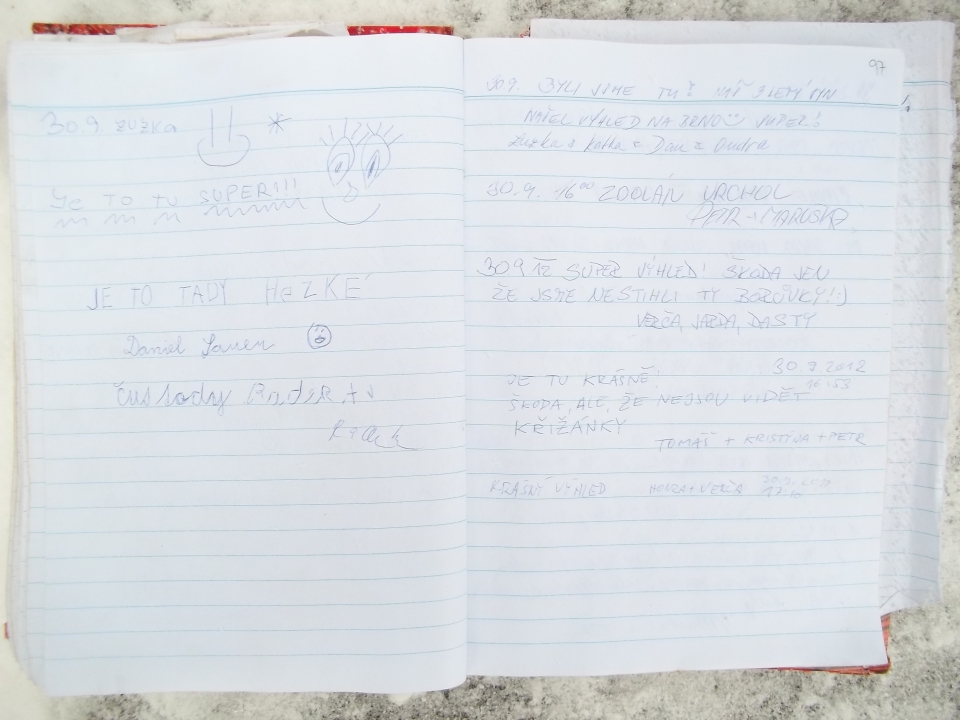 30.9. ZUZKA
Je TO TU SUPER!!!
JE TO TADY HEZKÉ
Daniel
čus
97
30.9. BYLI JSME TU
VÝHLED NA BRNO SUPER!
Zuzka + Katka + Dan + Ondra
30.9. 16⁰⁰ ZDOLÁN VRCHOL
PETR + MARUŠKA
30.9 SUPER VÝHLED! ŠKODA JEN
ŽE JSME NESTIHLI TY BORŮVKY! :)
VERČA, JARDA, DASTY
30.9.2012
16:53
JE TU KRÁSNĚ!
ŠKODA, ALE, ŽE NEJSOU VIDĚT
KŘIŽÁNKY
TOMÁŠ + KRISTÍNA + PETR
KRÁSNÝ VÝHLED HONZA + VERČA